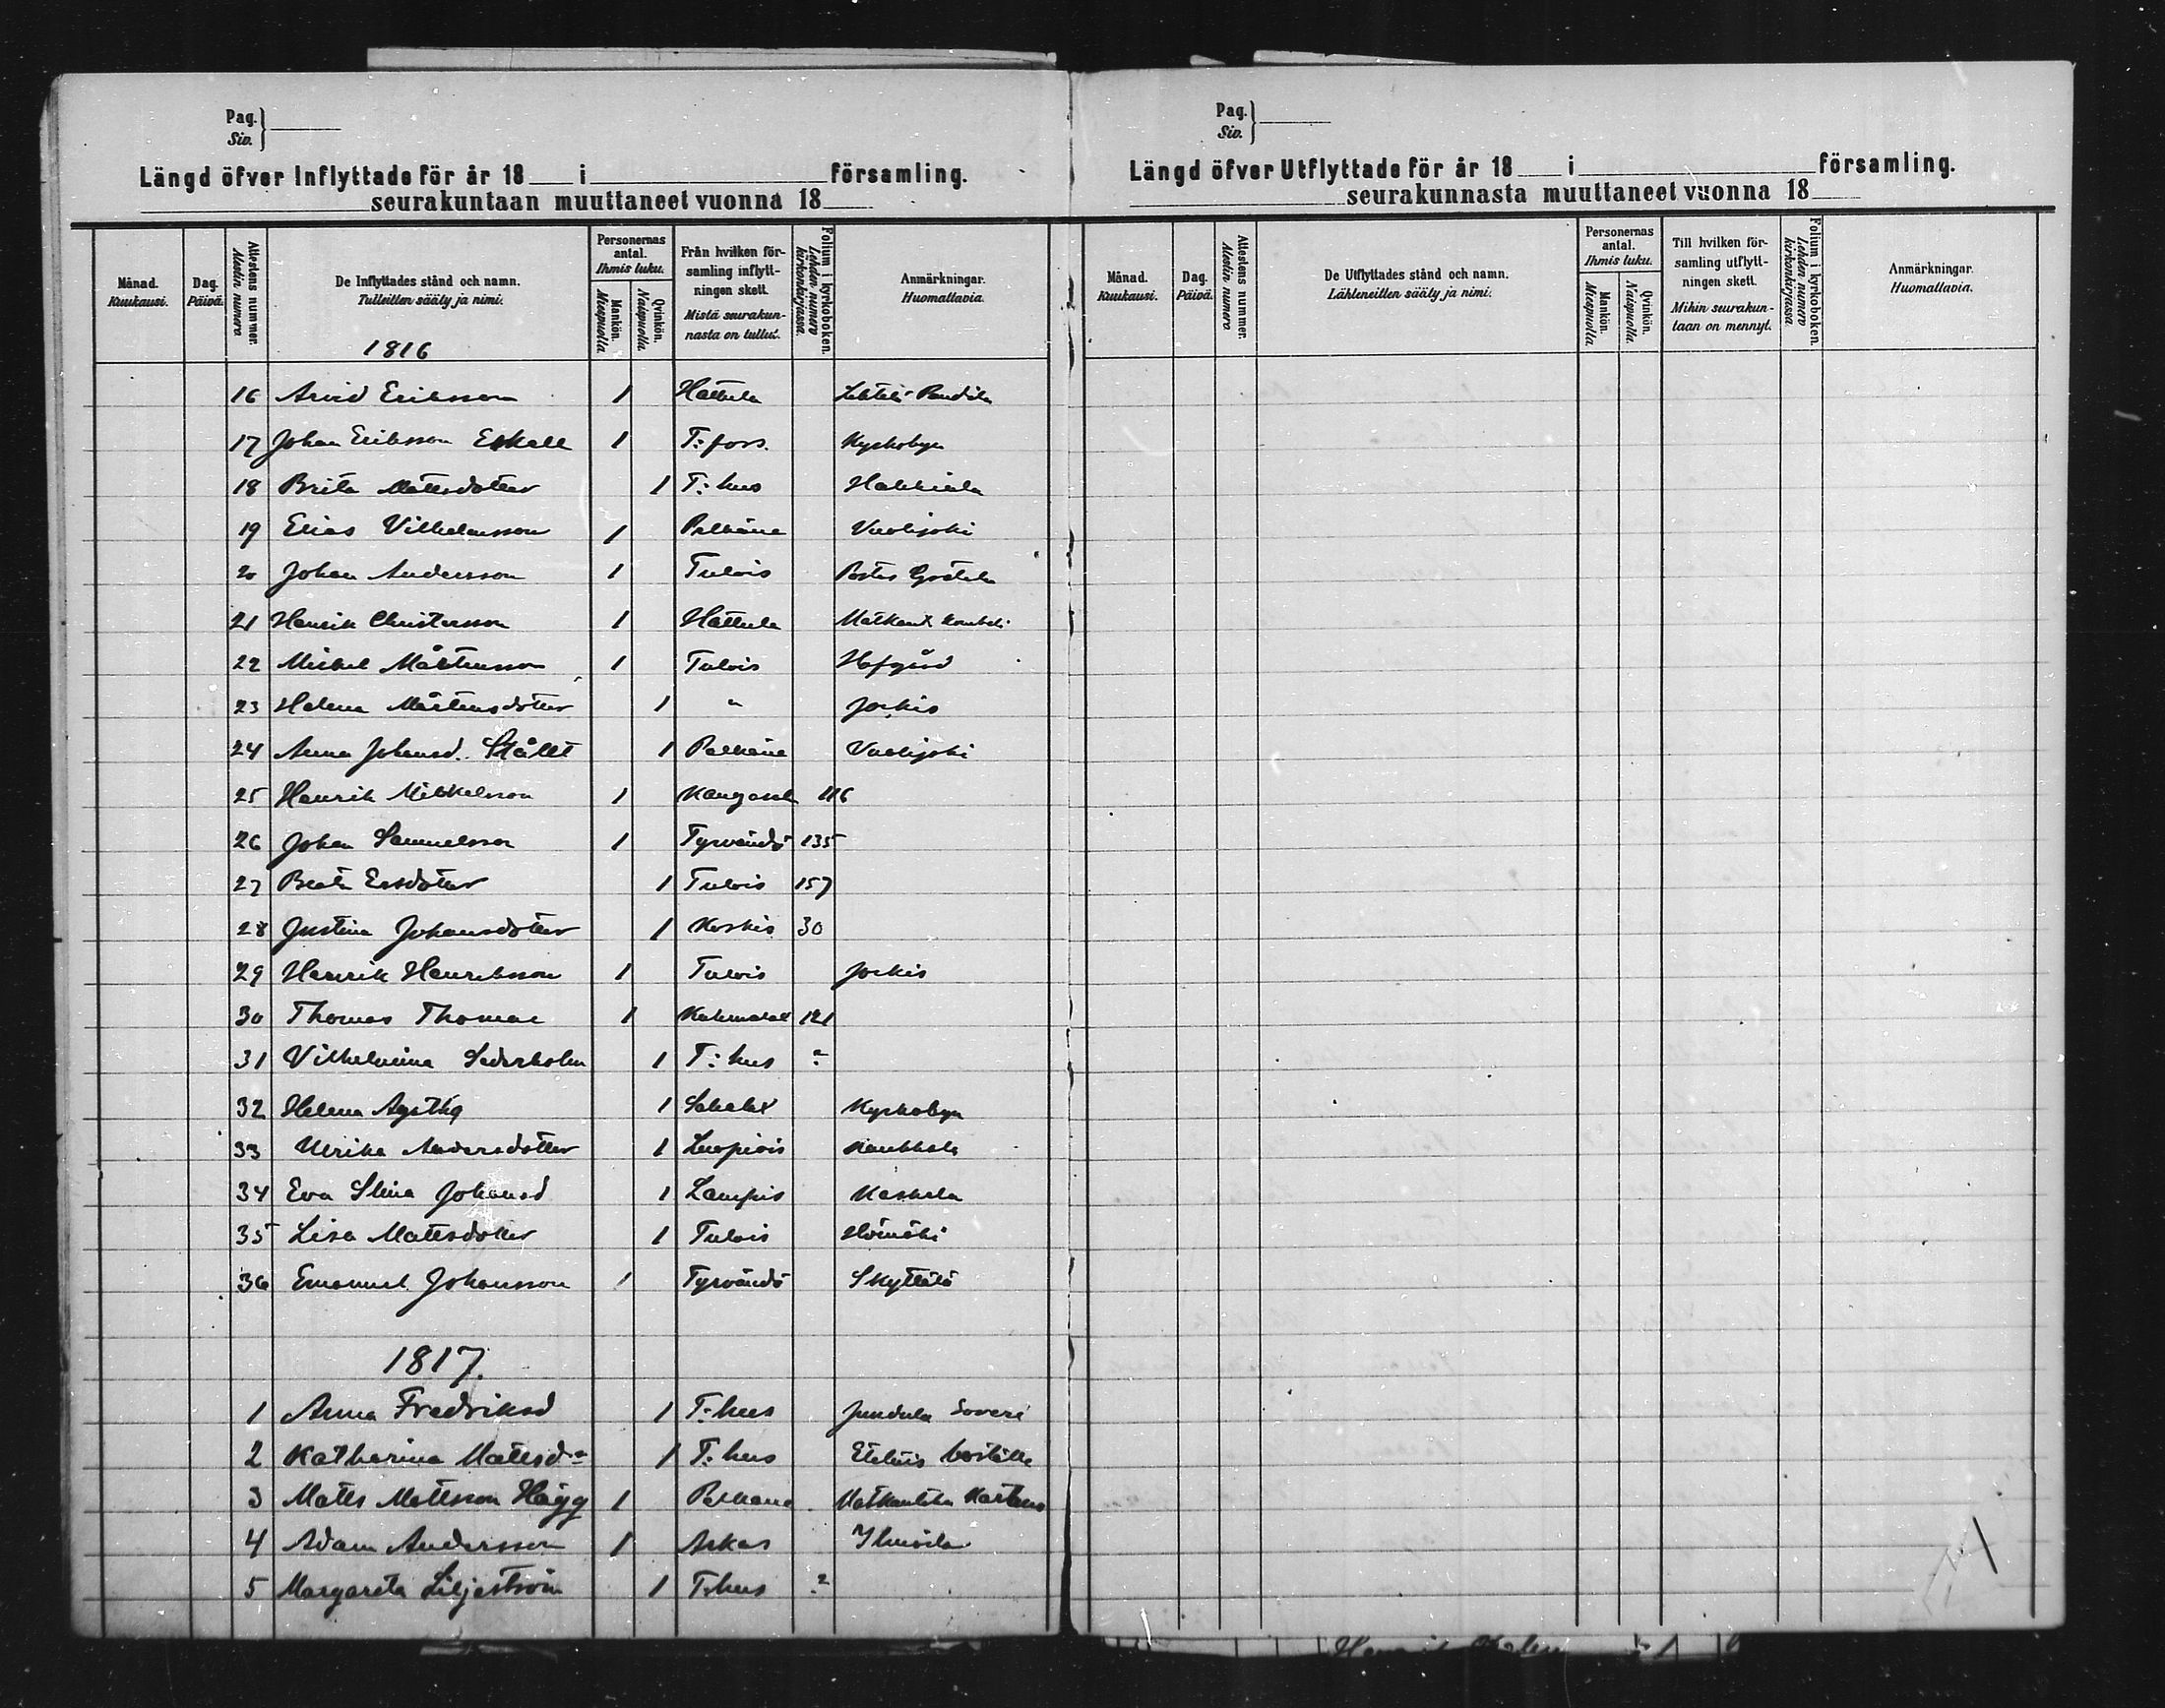 Pag.
Siv.
Längd öfver Inflyttade för år 18 i församling.
seurakuntaan muuttaneet vuonna 18
Månad.
Kuukausi.
Dag.
Päivä.
Attestens nummer.
Alestin numero
De Inflyttades stånd och namn.
Tulleitten sääty ja nimi.
1816
Personernas antal.
Ihmis luku.
Mankön.
Miespuolia
Qvinkön.
Naispuolia
Från hvilken för-
samling inflytt-
ningen skett.
Mistä seurakun-
nasta on tullut.
Folium i kyrkoboken.
Lehden numero
kirkonkirjassa.
Anmärkningar.
Huomattavia.
16 Arvid Eriksson 1 Hattula
17 Johan Eriksson Eskall 1 T:fors. Kyrkobyn
18 Brita Mattsdotter 1 T:hus Hakkiala
19 Elias Vilhelmsson 1 Palkäne Vuolijoki
20 Johan Andersson 1 Tulois
21 Henrik Christersson 1 Hattula
22 Mickel Mårtensson 1 Tulois Hofgård
23 Helena Mårtensdotter 1 " Jockis
24 Anna Johansd. Stållt 1 Palkäne Vuolijoki
25 Henrik Mikkelsson 1 Kangasala 116
26 Johan Samuelsson 1 Tyrvändö 135
27 Beata Ersdotter 1 Tulois 157
28 Justina Johansdotter 1 Koskis 30
29 Henrik Henriksson 1 Tulois Jockis
30 Thomas Thomae 1 121
31 Vilhelmina Sederholm 1 T:hus ?
32 Helena 1 Kyrkobyn
33 Ulrika Andersdotter 1 Luopiois
34 Eva Stina Johansd 1 Lampis
35 Lisa Mattsdotter 1 Tulois
36 Emanuel Johansson 1 Tyrvändö Skyttälä
1817.
1 Anna Fredriksd 1 T:hus
2 Katharina Mattsd:r 1 T:hus
3 Matts Mattsson Hägg 1 Palkäne
4 Adam Andersson 1 Akas
5 Margareta Liljeström 1 T:hus ?
Pag.
Siv.
Längd öfver Utflyttade för år 18 i församling.
seurakunnasta muuttaneet vuonna 18
Månad.
Kuukausi.
Dag.
Päivä.
Attestens nummer.
Alestin numero
De Utflyttades stånd och namn.
Lähteneitten sääty ja nimi.
Personernas antal.
Ihmis luku.
Mankön.
Miespuolia
Qvinkön.
Naispuolia
Till hvilken för-
samling utflytt-
ningen skett.
Mihin seurakun-
taan on mennyt.
Folium i kyrkoboken.
Lehden numero
kirkonkirjassa.
Anmärkningar.
Huomattavia.